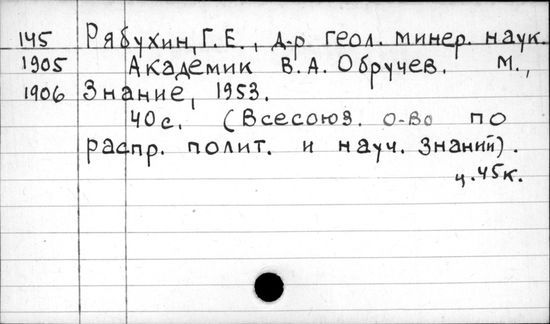 145 Рябухин, Г.Е., д-р геол. минер. наук.
1905 Академик В.А. Обручев. М.,
1906 Знание, 1953.
40с. (Всесоюз. о-во по
распр. полит. и науч. знаний).
ц. 45к.